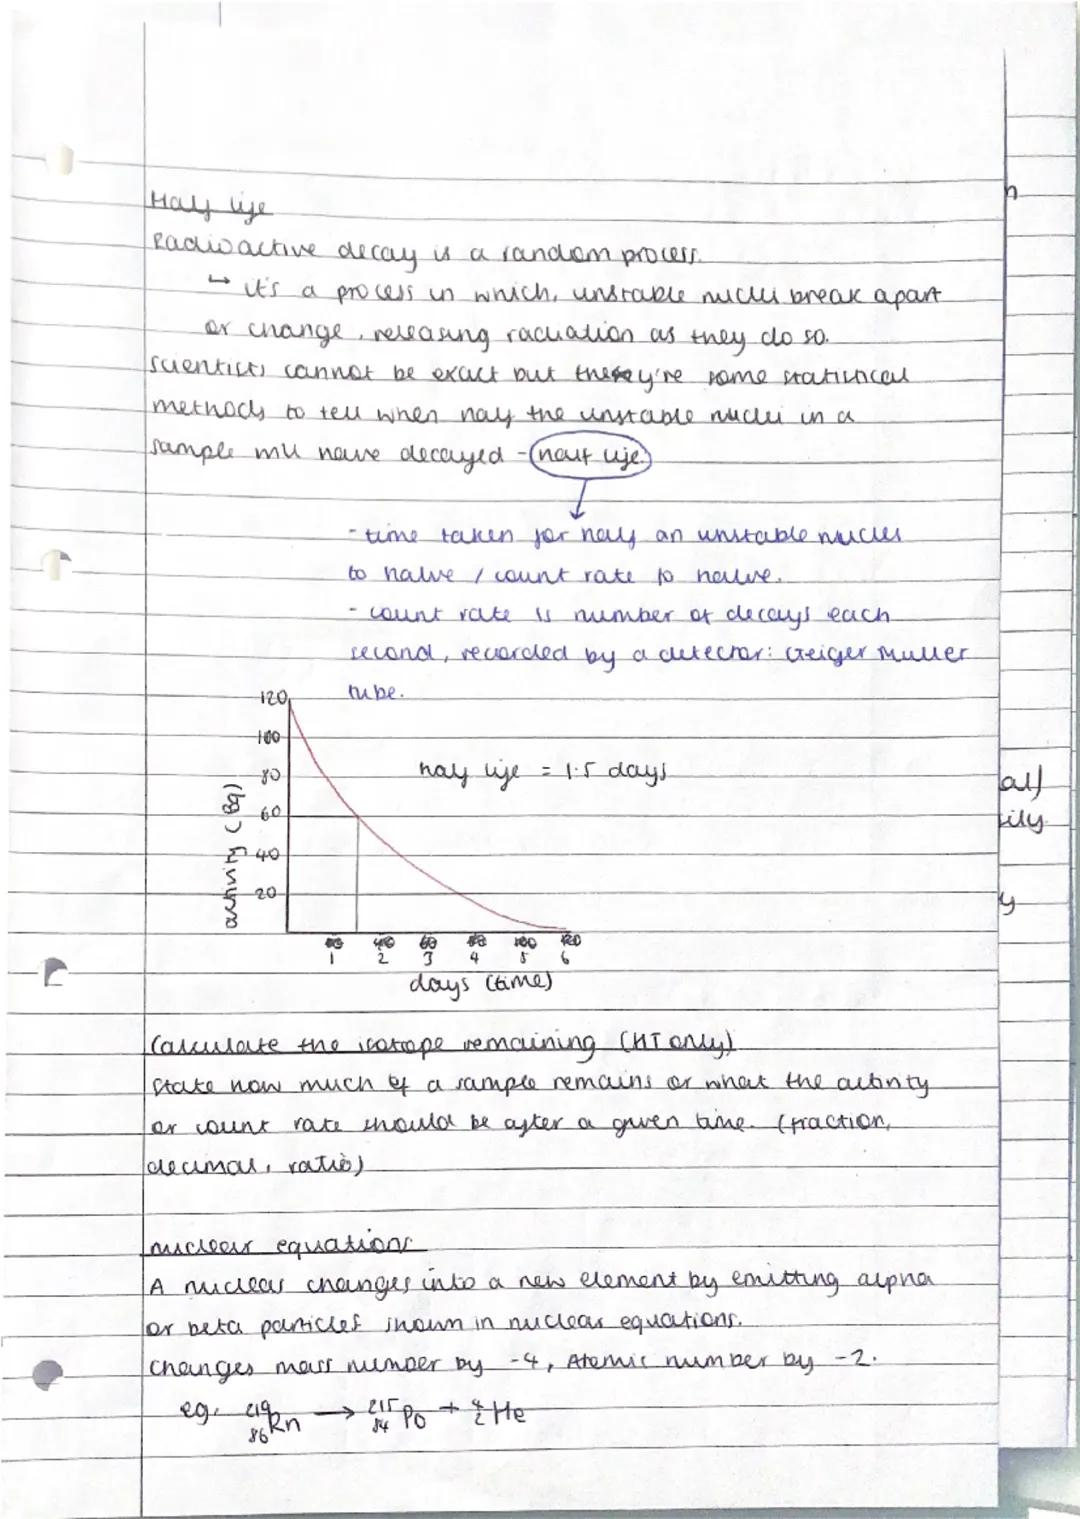 Half life
Radioactive decay is a random process.
↳ it's a process in which, unstable nuclei break apart
or change, releasing radiation as they do so.
scientists cannot be exact but they're some statistical
methods to tell when half the unstable nuclei in a
sample will have decayed - half life.
- time taken for half an unstable nucles
to halve / count rate to halve.
- count rate is number of decays each
second, recorded by a detector: Geiger Muller
tube.
120
100
80
60
40
20
activity (Bq)
half life = 1.5 days
20 40 60 80 100 120
1 2 3 4 5 6
days (time)
Calculate the isotope remaining (HT only)
State how much of a sample remains or what the activity
or count rate should be after a given time. (fraction,
decimal, ratio)
nuclear equations
A nuclear changes into a new element by emitting alpha
or beta particles shown in nuclear equations.
Changes mass number by -4, Atomic number by -2.
eg. ²¹⁹₈₆Rn → ²¹⁵₈₄Po + ⁴₂He
n
al)
ily
y